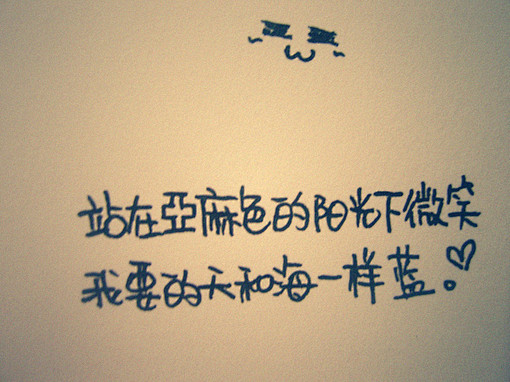 站在亞麻色的阳光下微笑
我要的天和海一样蓝。